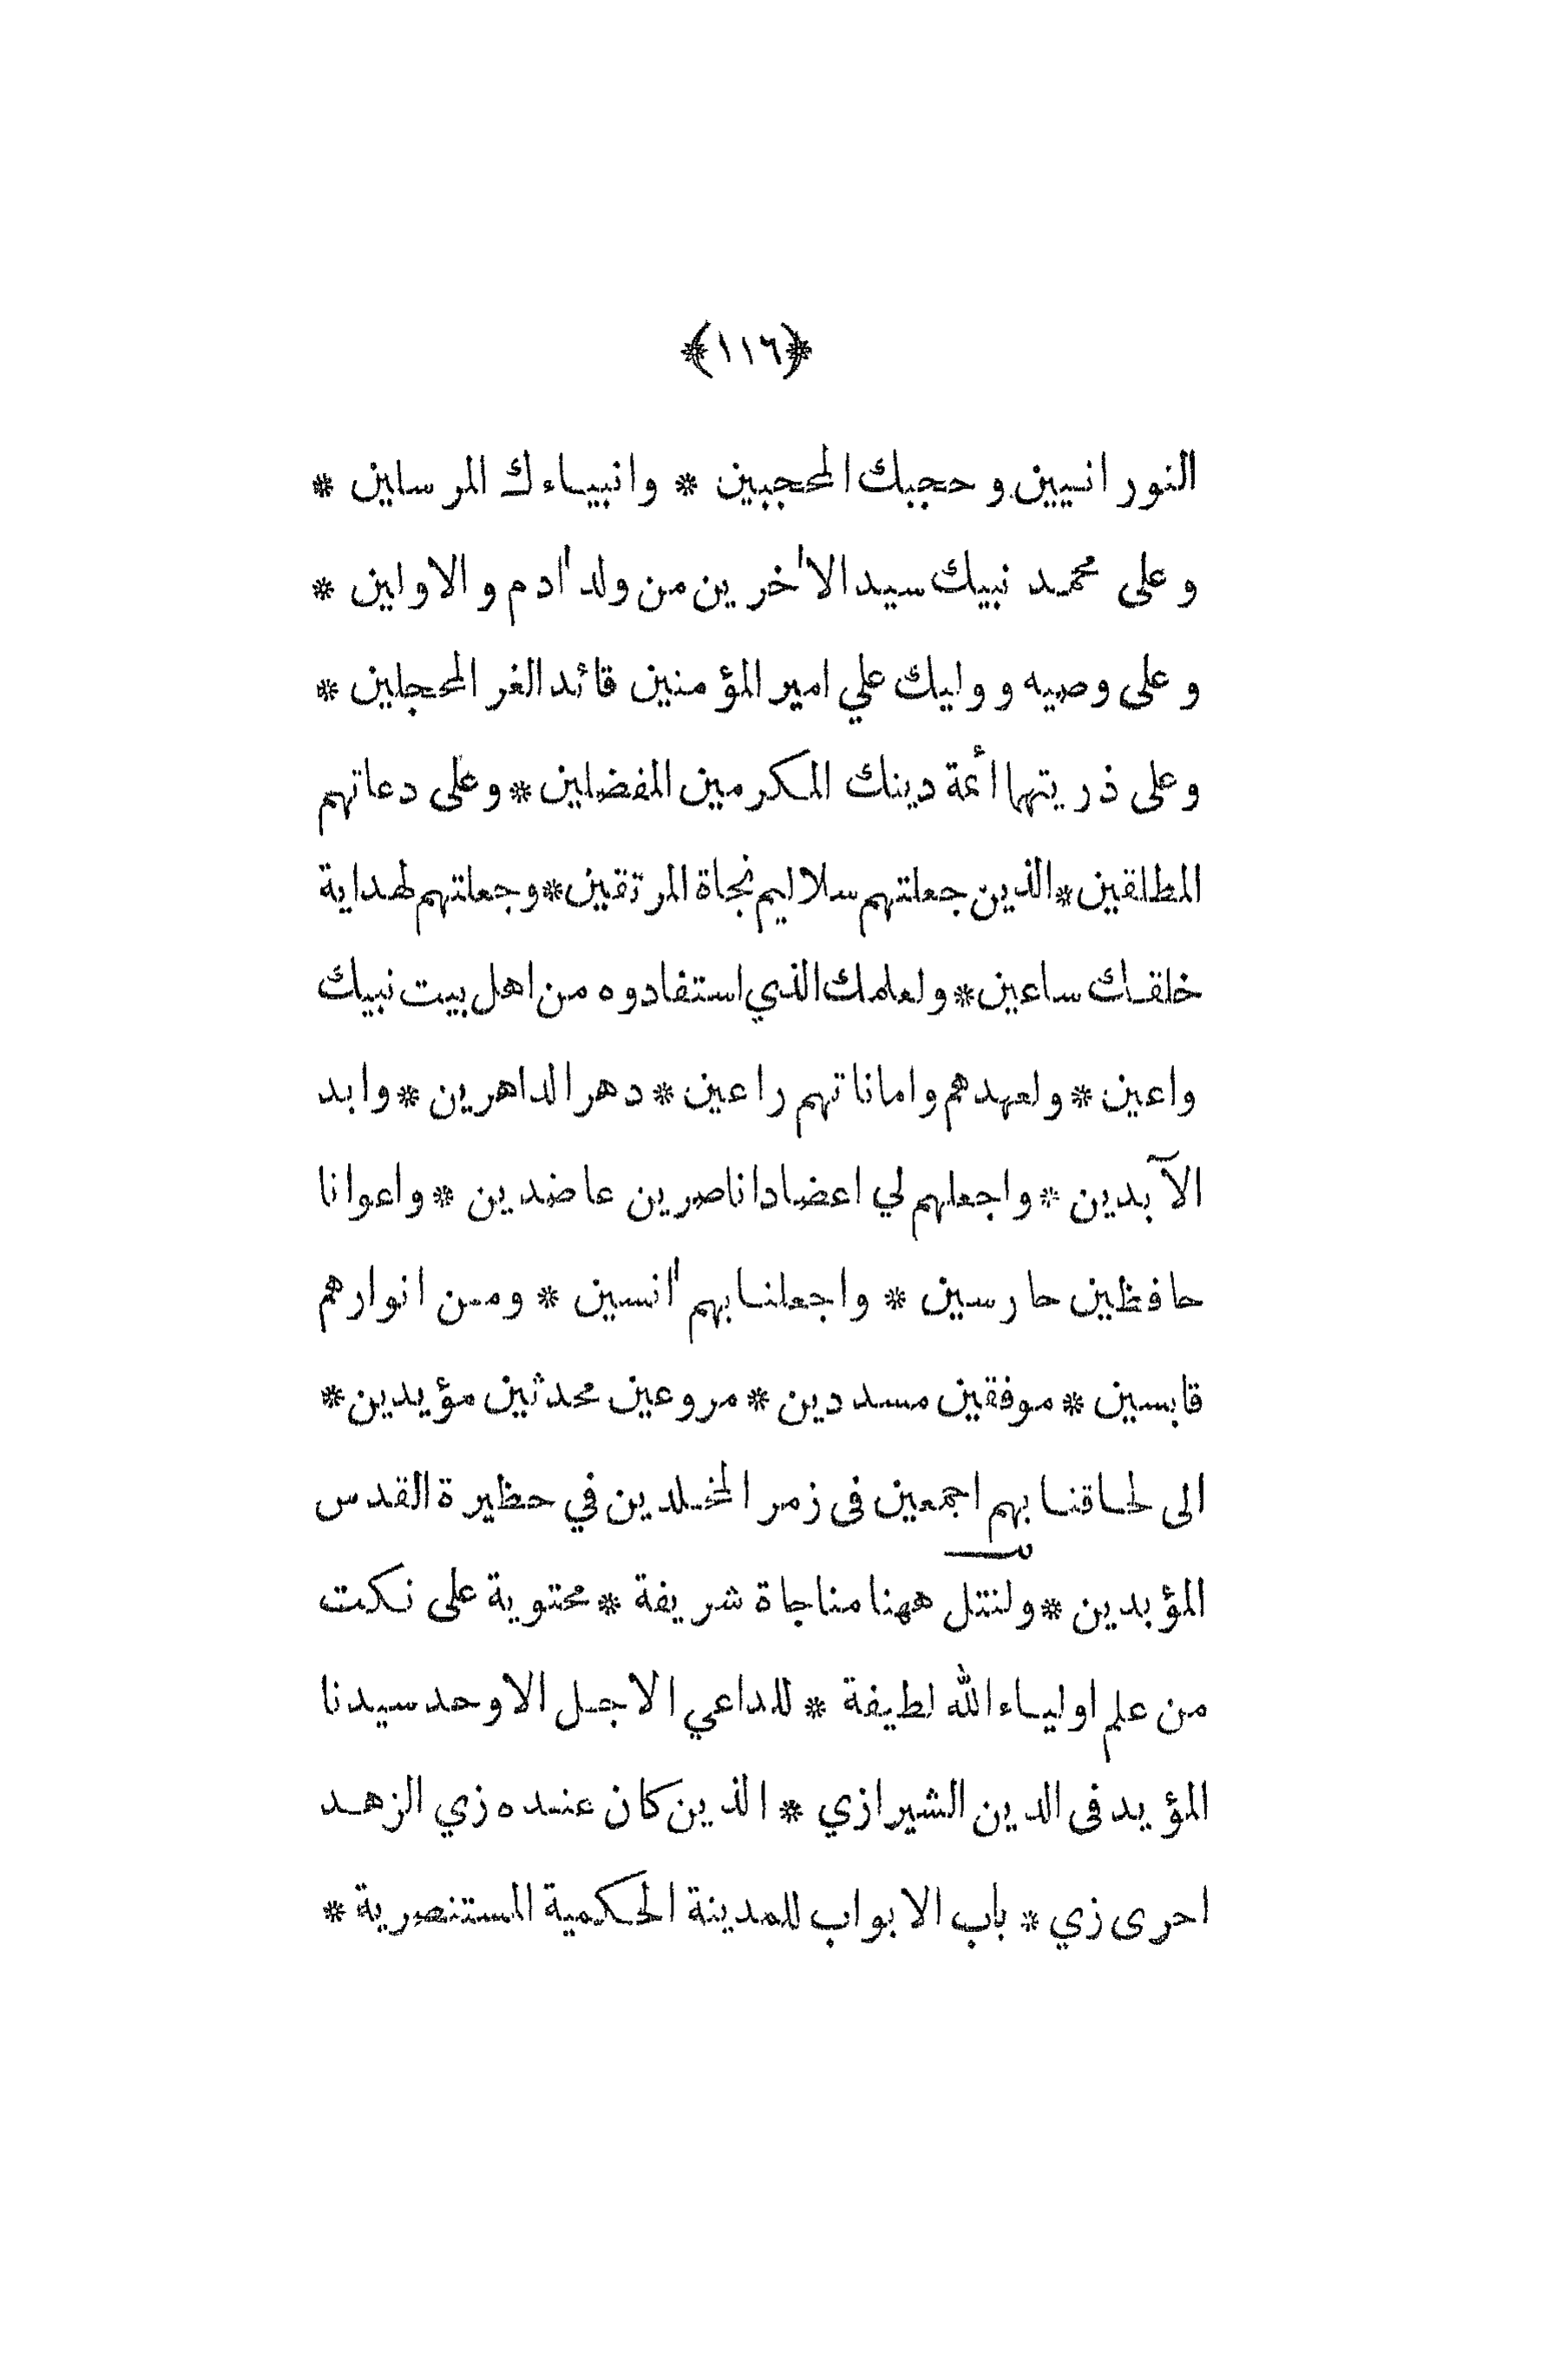 ﴿١١٦﴾
النورانيين وحجبك المحجبين * وانبياءك المرسلين *
وعلى محمد نبيك سيد الاٰخرين من ولد اٰدم والاولين *
وعلى وصيه ووليك علي امير المؤمنين قائد الغر المحجلين *
وعلى ذريتهما أئمة دينك المكرمين المفضلين * وعلى دعاتهم
المطلقين * الذين جعلتهم سلاليم نجاة المرتقين * وجعلتهم لهداية
خلقك ساعين * ولعلمك الذي استفادوه من اهل بيت نبيك
واعين * ولعهدهم واماناتهم راعين * دهر الداهرين * وابد
الآبدين * واجعلهم لي اعضادا ناصرين عاضدين * واعوانا
حافظين حارسين * واجعلنا بهم اٰنسين * ومن انوارهم
قابسين * موفقين مسددين * مروعين محدثين مؤيدين *
الى لحاقنا بهم اجمعين فى زمر المخلدين في حظيرة القدس
المؤبدين * ولنتل ههنا مناجاة شريفة * محتوية على نكت
من علم اولياء الله لطيفة * للداعي الاجل الاوحد سيدنا
المؤيد فى الدين الشيرازي * الذين كان عنده زي الزهد
احرى زي * باب الابواب للمدينة الحكمية المستنصرية *